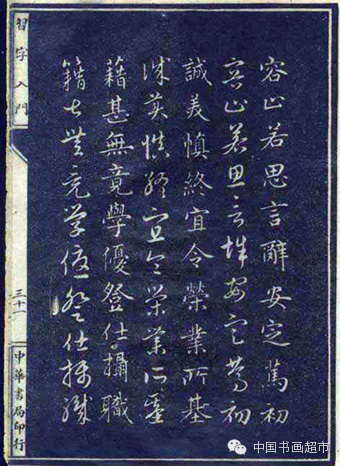 容止若思言辭安定篤初
容止若思言辭安定篤初
誠美慎終宜令榮業所基
誠美慎終宜令榮業所基
藉甚無竟學優登仕攝職
籍甚無竟學優登仕攝職
習字入門
三十一
中華書局印行
中国书画超市